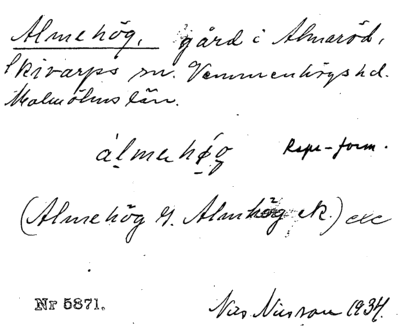 Almehög, gård i Almaröd,
Skivarps sn. Vemmenhögs hd.
Malmöhus län.
álmehǿg Rspr-form.
(Almehög G. Almhög ek.) exc
Nr 5871.
Nils Nilsson 1934.